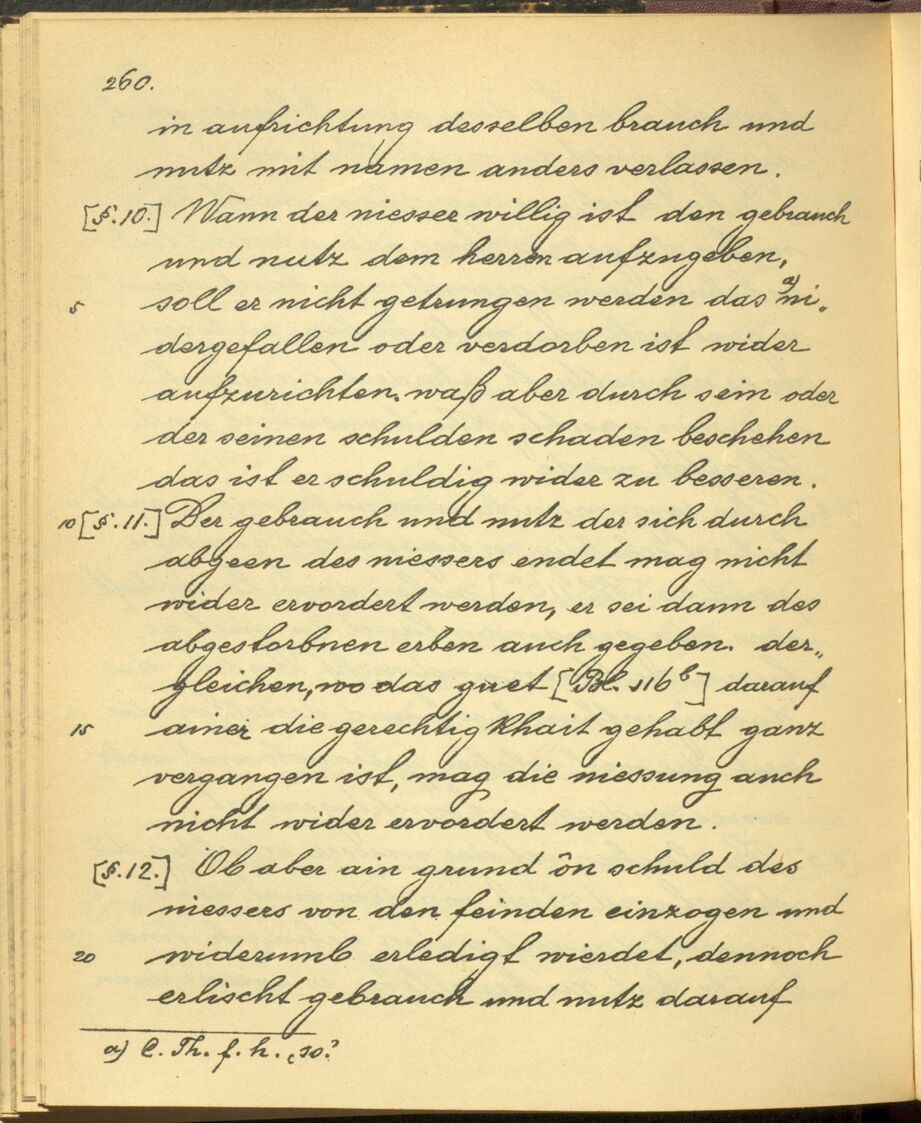 260.
in aufrichtung desselben brauch und
nutz mit namen anders verlassen.
[§.10.] Wann der niesser willig ist den gebrauch
und nutz dem herren aufzugeben,
5 soll er nicht getrungen werden das a) ni„
dergefallen oder verdorben ist wider
aufzurichten. waß aber durch sein oder
der seinen schulden schaden beschehen
das ist er schuldig wider zu besseren.
10 [§.11.] Der gebrauch und nutz der sich durch
abgeen des niessers endet mag nicht
wider ervordert werden, er sei dann des
abgestorbnen erben auch gegeben. der„
gleichen, wo das guet [Bl. 116b] darauf
15 ainer die gerechtigkhait gehabt ganz
vergangen ist, mag die niessung auch
nicht wider ervordert werden.
[§.12.] Ob aber ain grund ôn schuld des
niessers von den feinden einzogen und
20 widerumb erledigt wierdet, dennoch
erlischt gebrauch und nutz darauf
a) C. Th. f. h. „so“